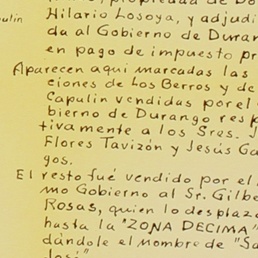 propiedad de Do
Hilario Losoya, y adjudi
pulin
da al Gobierno de Duran
en pago de impuesto pr
Aparecen aquí marcadas las
ciones de Los Berros y de
Capulin vendidas por el
bierno de Durango resp
tivamente a los Sres. J
Flores Tavizón y Jesús Ga
gos.
El resto fué vendido por el
mo Gobierno al Sr. Gilbe
Rosas, quien lo despláza
hasta la "ZONA DECIMA"
dándole el nombre de "Sa
José"